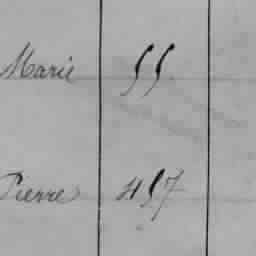 Marie 55
Pierre 457